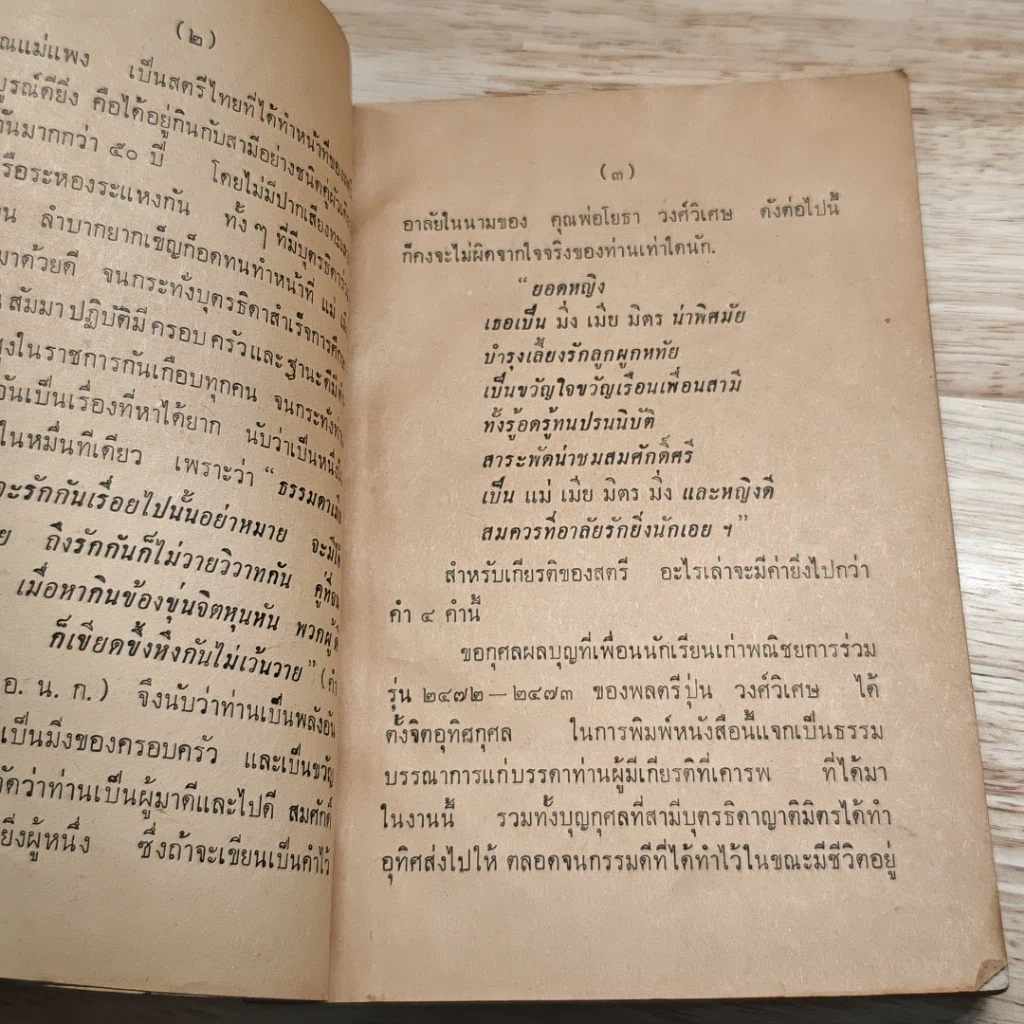 (๒)
ณแม่แพง เป็นสตรีไทยที่ได้ทำหน้าที่ของ
บูรณ์ดียิ่ง คือได้อยู่กินกับสามีอย่างชนิดคู่ผัว
กันมากกว่า ๕๐ ปี โดยไม่มีปากเสียงทะเลาะ
รือระหองระแหงกัน ทั้ง ๆ ที่มีบุตรธิดา
น ลำบากยากเข็ญก็อดทนทำหน้าที่ แม่
มาด้วยดี จนกระทั่งบุตรธิดาสำเร็จการศึกษา
สัมมาปฏิบัติมีครอบครัวและฐานะดีมี
ูงในราชการกันเกือบทุกคน จนกระทั่ง
อันเป็นเรื่องที่หาได้ยาก นับว่าเป็นหนึ่ง
ในหมื่นทีเดียว เพราะว่า “ธรรมดา
จะรักกันเรื่อยไปนั้นอย่าหมาย จะมี
ย ถึงรักกันก็ไม่วายวิวาทกัน คู่ที่
เมื่อหากินข้องขุ่นจิตหุนหัน พวกผู้
ก็เขียดขึ้งหึงกันไม่เว้นวาย” (คำ
อ. น. ก.) จึงนับว่าท่านเป็นพลังอัน
เป็นมิ่งของครอบครัว และเป็นขวัญ
จัดว่าท่านเป็นผู้มาดีและไปดี สมศักดิ์
ยิ่งผู้หนึ่ง ซึ่งถ้าจะเขียนเป็นคำไว้
(๓)
อาลัยในนามของ คุณพ่อโยธา วงศ์วิเศษ ดังต่อไปนี้
ก็คงจะไม่ผิดจากใจจริงของท่านเท่าใดนัก.
“ยอดหญิง
เธอเป็น มิ่ง เมีย มิตร น่าพิศมัย
บำรุงเลี้ยงรักลูกผูกหทัย
เป็นขวัญใจขวัญเรือนเพื่อนสามี
ทั้งรู้อดรู้ทนปรนนิบัติ
สาระพัดน่าชมสมศักดิ์ศรี
เป็น แม่ เมีย มิตร มิ่ง และหญิงดี
สมควรที่อาลัยรักยิ่งนักเอย ฯ”
สำหรับเกียรติของสตรี อะไรเล่าจะมีค่ายิ่งไปกว่า
คำ ๔ คำนี้
ขอกุศลผลบุญที่เพื่อนนักเรียนเก่าพณิชยการร่วม
รุ่น ๒๔๗๒—๒๔๗๓ ของพลตรีปุ่น วงศ์วิเศษ ได้
ตั้งจิตอุทิศกุศล ในการพิมพ์หนังสือนี้แจกเป็นธรรม
บรรณาการแก่บรรดาท่านผู้มีเกียรติที่เคารพ ที่ได้มา
ในงานนี้ รวมทั้งบุญกุศลที่สามีบุตรธิดาญาติมิตรได้ทำ
อุทิศส่งไปให้ ตลอดจนกรรมดีที่ได้ทำไว้ในขณะมีชีวิตอยู่